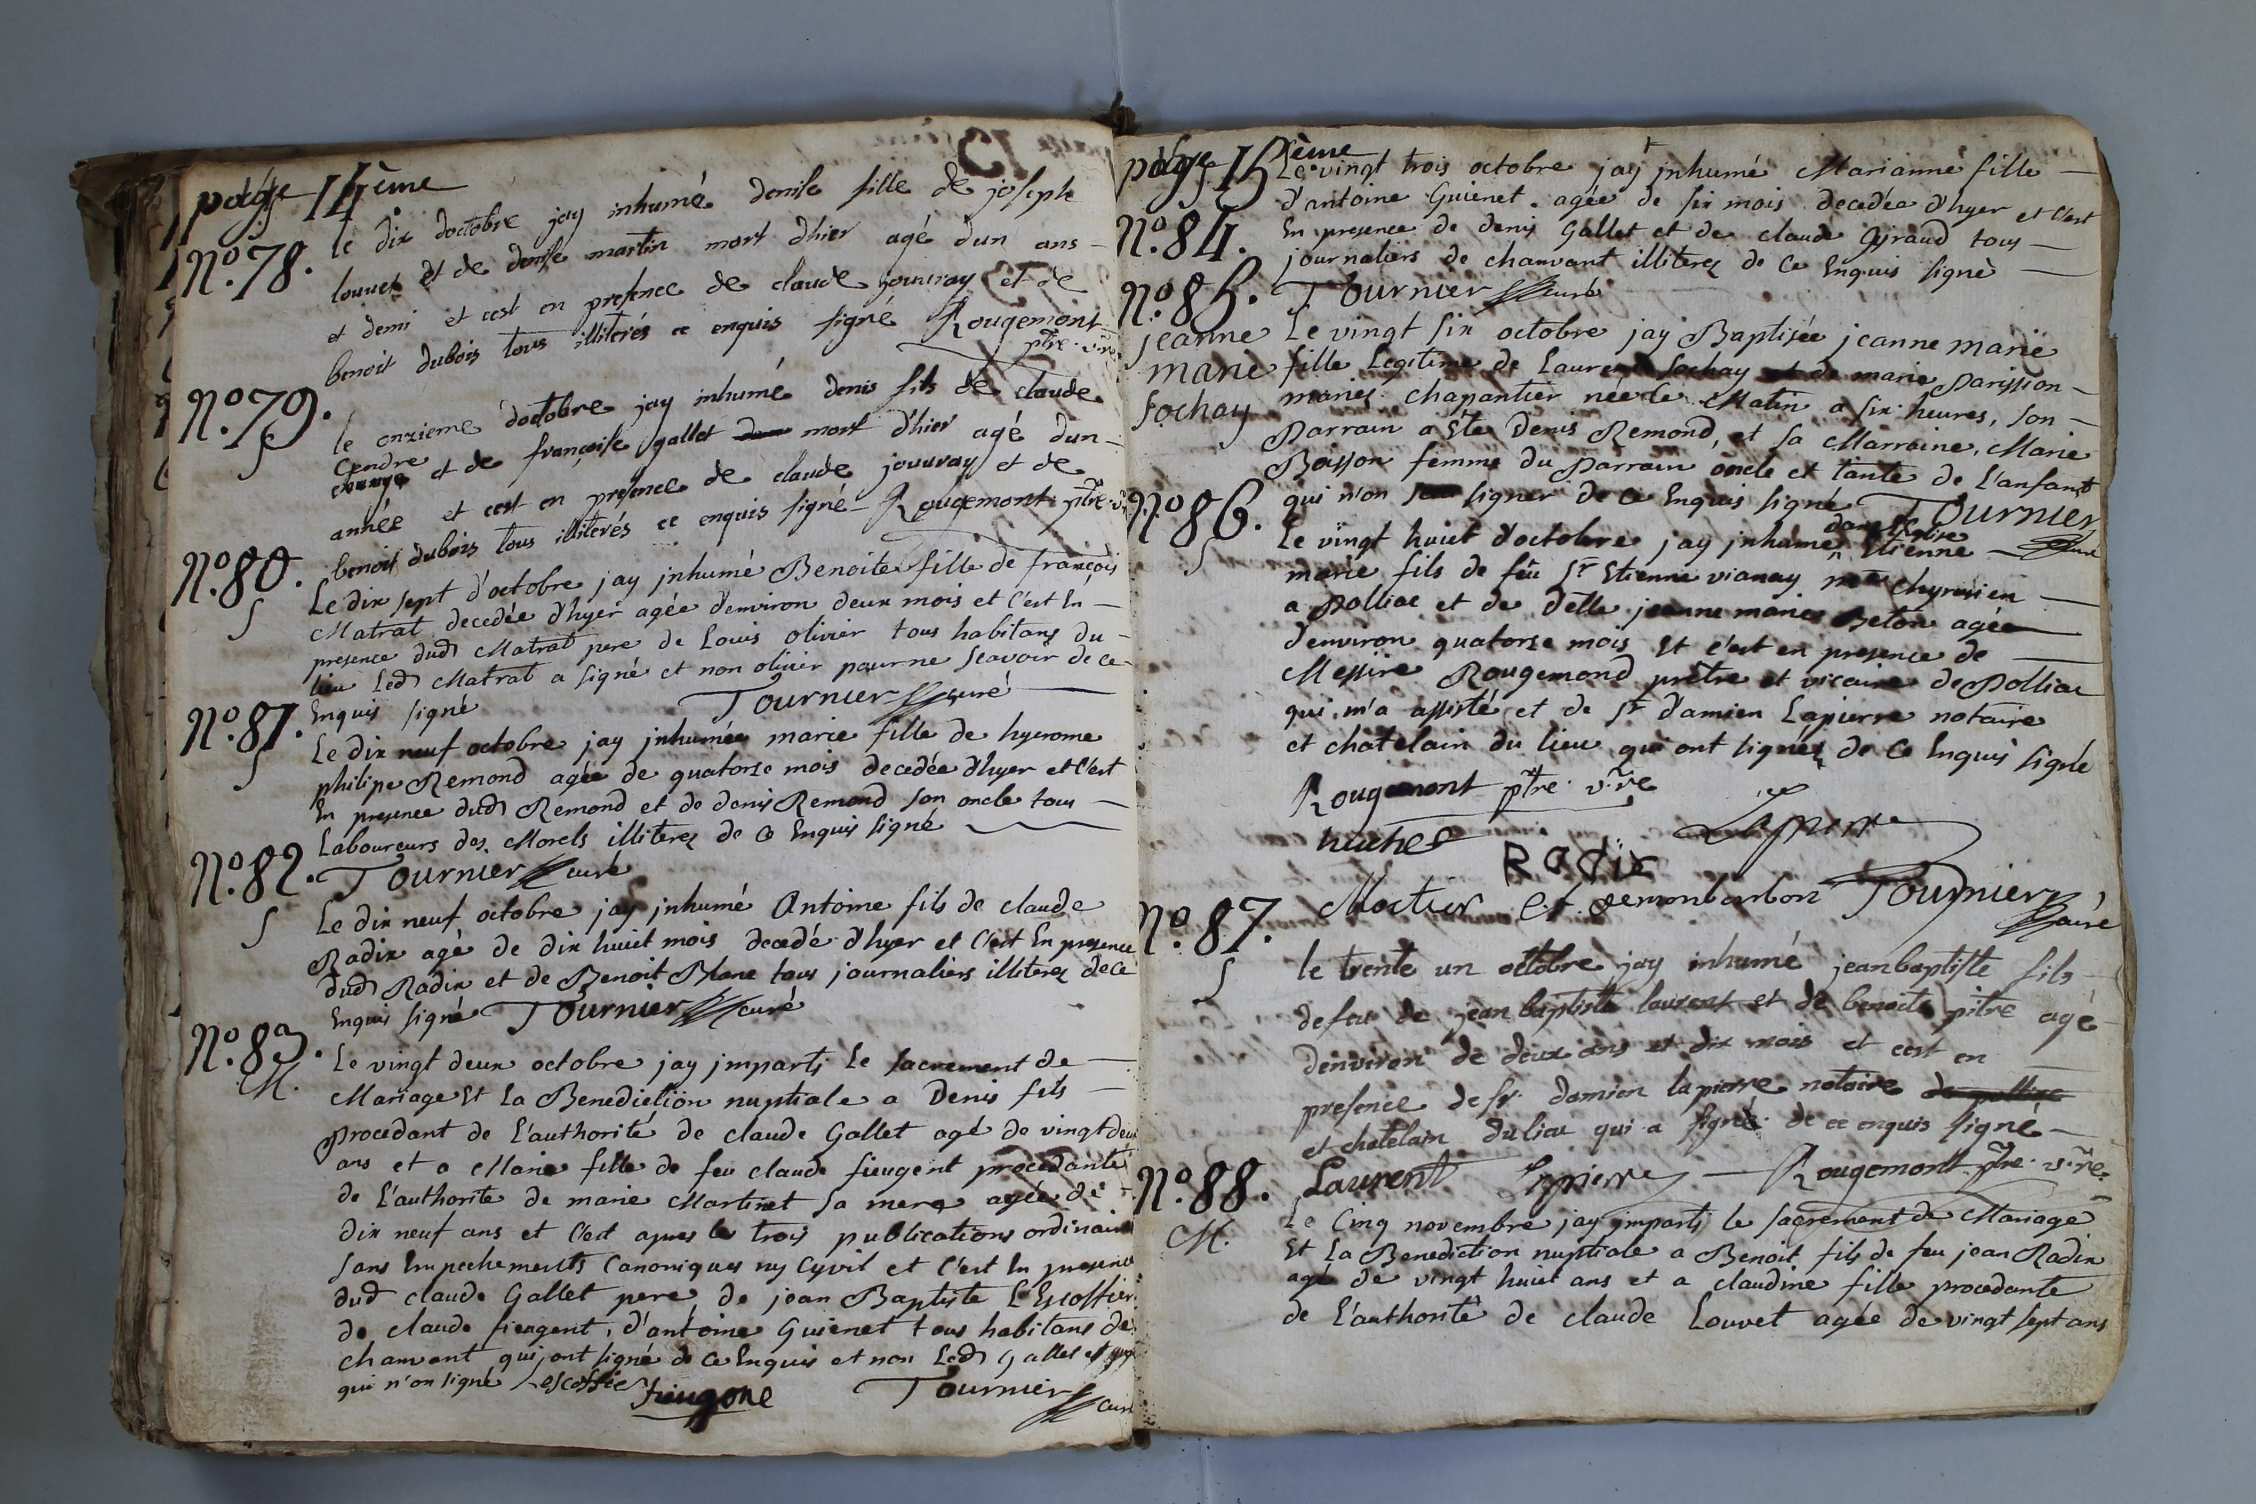 page 14ème
N.º 78.
le dix doctobre jay inhumé denise fille de joseph
louvet et de denise martin mort d'hier agé d'un ans
et demi et cest en presence de claude jouvray et de
benoit dubois tous illiterés ce enquis signé Rougemont
ptre. v.re
N.º 79.
le onzieme doctobre jay inhumé denis fils de claude
Cendre et de françoise gallet mort d'hier agé d'un
année et cest en presence de claude jouvray et de
benoit dubois tous illiterés ce enquis signé Rougemont ptre. v.
N.º 80.
Le dix sept d'octobre jay jnhumé Benoite fille de francois
Matrat decedée d'hyer agée d'environ deux mois et C'est En
presence dud Matrat pere de Louis olivier tous habitans du
lieu Led Matrat a signé et non olivier pour ne scavoir de ce
Enquis signé Tournier curé
N.º 81.
Le dix neuf octobre jay jnhumée marie fille de hyerome
philipe Remond agée de quatorse mois decedée d'hyer et C'est
En presence dud Remond et de denis Remond son oncle tous
Laboureurs des Morels illiterez de ce Enquis signé
Tournier curé
N.º 82.
Le dix neuf octobre jay jnhumé Antoine fils de claude
Radix agé de dix huict mois decedé d'hyer et C'est En presence
dud Radix et de Benoit Blanc tous journaliers illiterez de ce
Enquis signé Tournier curé
N.º 83.
M.
Le vingt deux octobre jay jmparti Le sacrement de
Mariage Et La Benediction nuptiale a Denis fils
procedant de L'authorité de claude Gallet agé de vingt deux
ans et a Marie fille de feu claude fieugent procedante
de L'authorité de marie Martinet sa mere agée de
dix neuf ans et C'est apres les trois publications ordinaires
sans Empechements Canoniques ny Cyvil et C'est En presence
dud claude Gallet pere de jean Baptiste L'Escoffier
de claude fieugent, d'antoine Guienet tous habitans de
chanvent qui ont signé de ce Enquis et non Led Gallet et
qui n'on signé escoffie fieugone Tournier curé
page 15ème
N.º 84.
Le vingt trois octobre jay jnhumé Marianne fille
d'antoine Guienet agée de six mois decedée d'hyer et C'est
En presence de denis Gallet et de claude Giraud tous
journaliers de chanvant illiterez de ce Enquis signé
Tournier curé
N.º 85.
jeanne
marie
sochay
Le vingt six octobre jay Baptisée jeanne marie
fille Legitime de Laurent sochay et de marie Parission
mariez chapantier née le Matin a six heures, son
Parrain a Eté Denis Remond, et sa Marraine, Marie
Boisson femme du Parrain oncle et tante de L'anfant
qui n'on sceu signer de ce Enquis signé Tournier
curé
N.º 86.
Le vingt huict d'octobre jay jnhumé dans l'Eglise Etienne
marie fils de feu Sr Etienne vianay mtre chyrurien
a Polliac et de delle jeanne marie Beton agée
d'environ quatorse mois Et c'est en presence de
Messire Rougemond prêtre et vicaire de Polliac
qui m'a assisté et de Sr d'amien Lapierre notaire
et chatelain du lieu qui ont signéz de ce Enquis signé
Rougemont ptre. v.re
Lapierre
RADIX
Tournier curé
N.º 87.
le trente un octobre jay inhumé jean baptiste fils
defeu de jean baptiste laurent et de benoite pitre agé
denviron de deux ans et dix mois et cest en
presence de sr. damien lapierre notaire de polliac
et chatelain du lieu qui a signé de ce enquis signé
Laurent Lapierre Rougemont ptre. v.re
N.º 88.
M.
Le Cinq novembre jay jmparti le sacrement de Mariage
Et La Benediction nuptiale a Benoit fils de feu jean Radix
agé de vingt huict ans et a claudine fille procedante
de L'authorité de claude Louvet agée de vingt sept ans